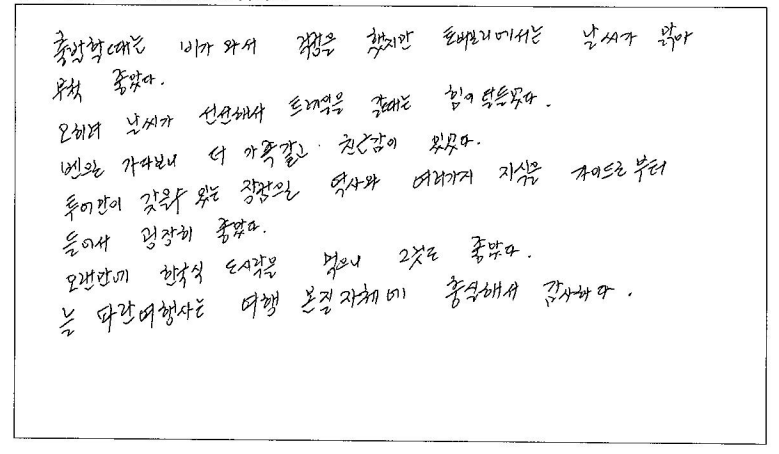 출발할때는 비가 와서 걱정을 했지만 토버모리에서는 날씨가 맑아
무척 좋았다.
오히려 날씨가 선선해서 트레킹을 갈때는 힘이 덜들었다.
벤으로 가다보니 더 가족같고 친근감이 있었다.
투어만이 갖을수 있는 장점으로 역사와 여러가지 지식을 가이드로부터
들어서 굉장히 좋았다.
오랜만에 한국식 도시락을 먹으니 그것도 좋았다.
늘 파란여행사는 여행 본질자체에 충실해서 감사하다.